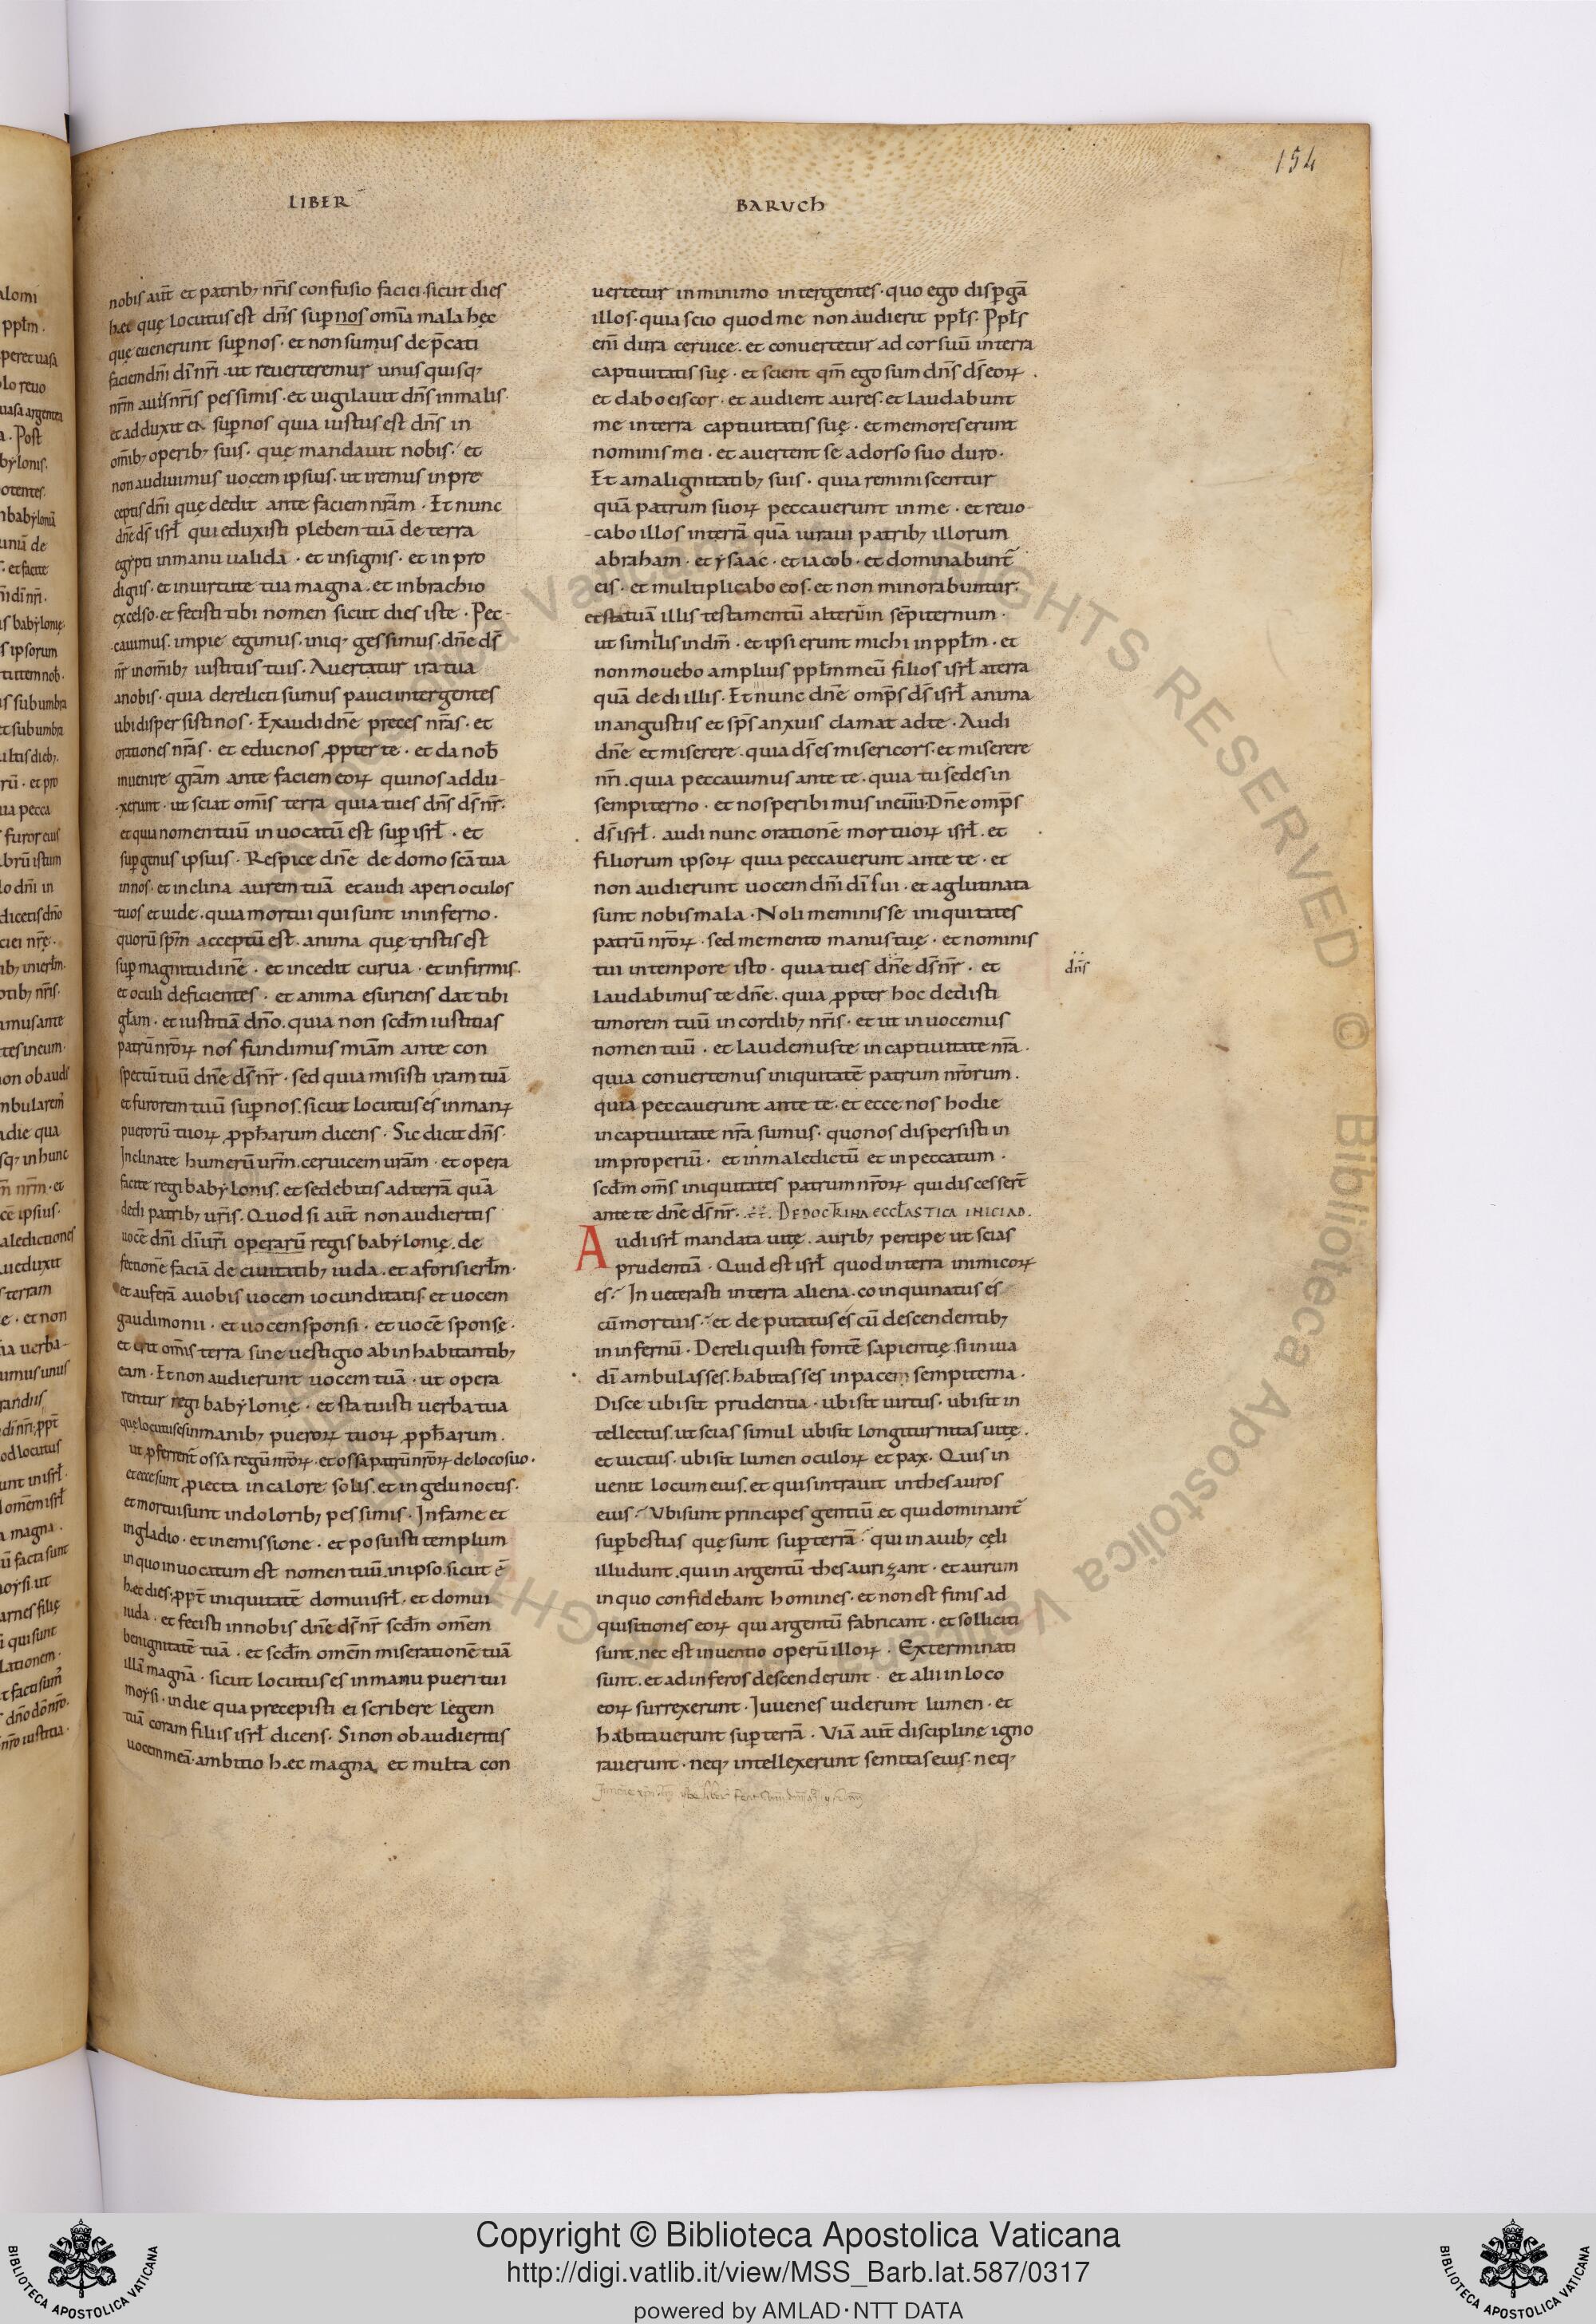 154
LIBER
BARVCH
nobis aut̄ et patrib; nr̄is confusio faciei. sicut dies
hęc quę locutus est dn̄s sup nos om̄ia mala hęc
quę euenerunt sup nos · et non sumus dep̄cati
faciem dn̄i dī nr̄i · ut reuerteremur unus quisq;
nr̄m a uiis nr̄is pessimis · et uigilauit dn̄s in malis ·
et adduxit ea sup nos quia iustus est dn̄s in
om̄ib; operib; suis · quę mandauit nobis · et
non audiuimus uocem ipsius · ut iremus in pre
ceptis dn̄i quę dedit ante faciem nr̄am · Et nunc
dn̄e ds̄ isrl̄ qui eduxisti plebem tuā de terra
egypti in manu ualida · et insignis · et in pro
digiis · et in uirtute tua magna · et in brachio
excelso · et fecisti tibi nomen sicut dies iste · Pec-
cauimus. impie egimus. iniq; gessimus. dn̄e ds̄
nr̄ in om̄ib; iustitiis tuis. Auertatur ira tua
a nobis · quia derelicti sumus pauci inter gentes
ubi dispersisti nos · Exaudi dn̄e preces nr̄as · et
orationes nr̄as · et educ nos ꝓpter te · et da nob̄
inuenire gr̄am ante faciem eoꝝ qui nos addu-
xerunt · ut sciat om̄is terra quia tu es dn̄s ds̄ nr̄ ·
et quia nomen tuū inuocatū est sup isrl̄ · et
sup genus ipsius · Respice dn̄e de domo sc̄a tua
in nos · et inclina aurem tuā et audi aperi oculos
tuos et uide · quia mortui qui sunt in inferno ·
quorū sp̄m acceptū est · anima quę tristis est
sup magnitudinē · et incedit curua · et infirmis ·
et oculi deficientes · et anima esuriens dat tibi
gl̄am · et iustitiā dn̄o. quia non scd̄m iustitias
patrū nr̄oꝝ nos fundimus miām ante con
spectū tuū dn̄e ds̄ nr̄ · sed quia misisti iram tuā
et furorem tuū sup nos. sicut locutus es in manꝝ
puerorū tuoꝝ ꝓph̄arum dicens · Sic dicit dn̄s ·
Inclinate humerū ur̄m. ceruicem urām · et opera
facite regi babylonis. et sedebitis ad terrā quā
dedi patrib; ur̄is. Quod si aut̄ non audieritis
uocē dn̄i dī uri operarū regis babylonię. de
fectionē faciā de ciuitatib; iuda. et a foris ierl̄m ·
et auferā a uobis uocem iocunditatis et uocem
gaudimonii · et uocem sponsi · et uocē sponsę ·
et erit om̄is terra sine uestigio ab inhabitantib;
eam · Et non audierunt uocem tuā · ut opera
rentur regi babylonię · et statuisti uerba tua
quę locutus es in manib; pueroꝝ tuoꝝ ꝓph̄arum ·
ut ꝓferrent̄ ossa regū nr̄oꝝ · et ossa patrū nr̄oꝝ de loco suo ·
et ecce sunt ꝓiecta in calore solis. et in gelu noctis ·
et mortui sunt in dolorib; pessimis · In fame et
in gladio · et in emissione · et posuisti templum
in quo inuocatum est nomen tuū. in ipso. sicut ē
hęc dies. ꝓpt̄ iniquitatē domui isrl̄ · et domui
iuda · et fecisti in nobis dn̄e ds̄ nr̄ scd̄m om̄em
benignitatē tuā · et scd̄m om̄em miserationē tuā
illā magnā · sicut locutus es in manu pueri tui
moysi · in die qua precepisti ei scribere legem
tuā coram filiis isrl̄ dicens · Si non obaudieritis
uocem meā · ambitio hęc magna et multa con
uertetur in minimo inter gentes · quo ego dispgā
illos · quia scio quod me non audierit ppl̄s · Ppl̄s
eni dura ceruice. et conuertetur ad cor suū in terra
captiuitatis suę · et scient qm̄ ego sum dn̄s ds̄ eoꝝ ·
et dabo eis cor · et audient aures. et laudabunt
me in terra captiuitatis suę · et memores erunt
nominis mei · et auertent se a dorso suo duro ·
Et a malignitatib; suis · quia reminiscentur
quā patrum suoꝝ peccauerunt in me · et reuo-
cabo illos in terrā quā iuraui patrib; illorum
abraham · et ysaac · et iacob · et dominabunt̄
eis · et multiplicabo eos. et non minorabuntur ·
et statuā illis testamentū alterū in sēpiternum ·
ut sim illis in dm̄ · et ipsi erunt michi in ppl̄m · et
non mouebo amplius ppl̄m meū filios isrl̄ a terra
quā dedi illis · Et nunc dn̄e omp̄s ds̄ isrl̄ anima
in angustiis et sp̄s anxuis clamat ad te · Audi
dn̄e et miserere · quia ds̄ es misericors · et miserere
nr̄i · quia peccauimus ante te · quia tu sedes in
sempiterno · et nos peribimus in euū · Dn̄e omp̄s
ds̄ isrl̄ · audi nunc orationē mortuoꝝ isrl̄ · et
filiorum ipsoꝝ quia peccauerunt ante te · et
non audierunt uocem dn̄i dī sui · et aglutinata
sunt nobis mala · Noli meminisse iniquitates
patrū nr̄oꝝ · sed memento manus tuę · et nominis
tui in tempore isto · quia tu es dn̄e ds̄ nr̄ · et
dn̄s
laudabimus te dn̄e · quia ꝓpter hoc dedisti
timorem tuū in cordib; nr̄is · et ut inuocemus
nomen tuū · et laudemus te in captiuitate nr̄a ·
quia conuertemus iniquitatē patrum nr̄orum ·
quia peccauerunt ante te · et ecce nos hodie
in captiuitate nr̄a sumus · quo nos dispersisti in
improperiū · et in maledictū et in peccatum ·
scd̄m om̄s iniquitates patrum nr̄oꝝ qui discesser̄t
ante te dn̄e ds̄ nr̄ · DE DOCTRINA ECCL̄ASTICA INICIAD.
Audi isrl̄ mandata uitę · aurib; percipe ut scias
prudentiā · Quid est isrl̄ quod in terra inimicoꝝ
es · Inueterasti in terra aliena. coinquinatus es
cū mortuis · et deputatus es cū descendentib;
in infernū · Dereliquisti fontē sapientię. si in uia
dī ambulasses. habitasses in pacem sempiterna ·
Disce ubi sit prudentia · ubi sit uirtus · ubi sit in
tellectus. ut scias simul ubi sit longiturnitas uitę ·
et uictus · ubi sit lumen oculoꝝ et pax · Quis in
uenit locum eius. et quis intrauit in thesauros
eius · Vbi sunt principes gentiū et qui dominant̄
sup bestias quę sunt sup terrā · qui in auib; cęli
illudunt. qui in argentū thesaurizant · et aurum
in quo confidebant homines · et non est finis ad
quisitiones eoꝝ qui argentū fabricant · et solliciti
sunt. nec est inuentio operū illoꝝ · Exterminati
sunt. et ad inferos descenderunt · et alii in loco
eoꝝ surrexerunt · Iuuenes uiderunt lumen · et
habitauerunt sup terrā · Viā aut̄ disciplinę igno
rauerunt · neq; intellexerunt semitas eius · neq;
Copyright © Biblioteca Apostolica Vaticana
http://digi.vatlib.it/view/MSS_Barb.lat.587/0317
powered by AMLAD·NTT DATA